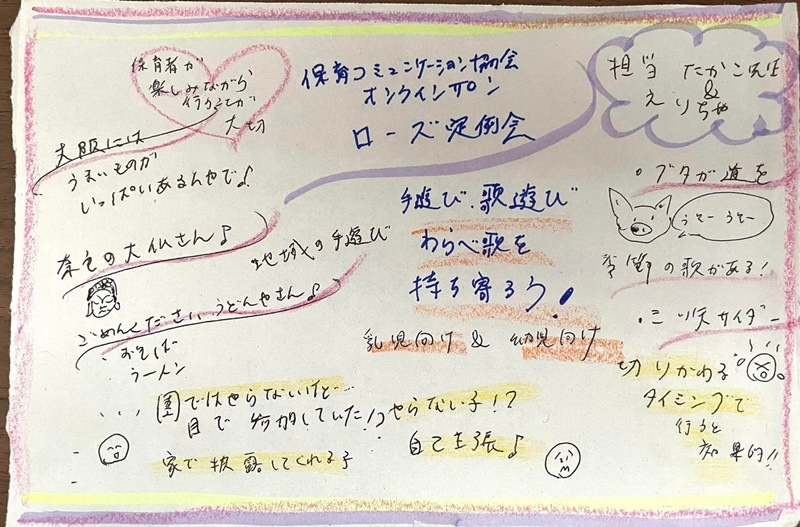 保育者が
楽しみながら
行うことが
大切
保育コミュニケーション協会
オンラインサロン
ローズ定例会
担当 たかこ先生
&
えりちゃ
大阪には
うまいものが
いっぱいあるんやで♪
奈良の大仏さん♪
地域の手遊び
ごめんください うどんやさん♪
おそば
ラーメン
手遊び・歌遊び
わらべ歌を
持ち寄ろう!
乳児向け & 幼児向け
。ブタが道を
うそー うそー
季節の歌がある!
・三ツ矢サイダー
切りかわる
タイミングで
行うと
効果的!!
園ではやらないけど…
目で参加していた!?
家で披露してくれる子
やらない子!?
自己主張♪